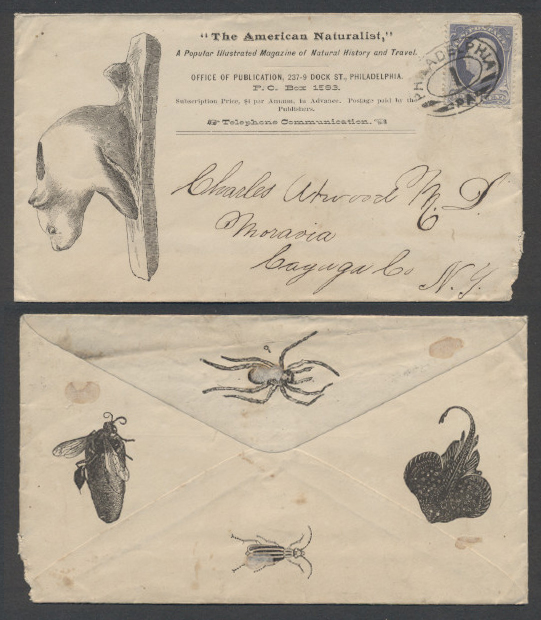 "The American Naturalist,"
A Popular Illustrated Magazine of Natural History and Travel.
OFFICE OF PUBLICATION, 237-9 DOCK ST., PHILADELPHIA.
P. O. Box 1593.
Subscription Price, $4 per Annum, in Advance. Postage paid by the
Publishers.
☞ Telephone Communication. ☜
PHILADELPHIA
PA.
Charles Atwood M D
Moravia
Cayuga Co
N. Y.
♀